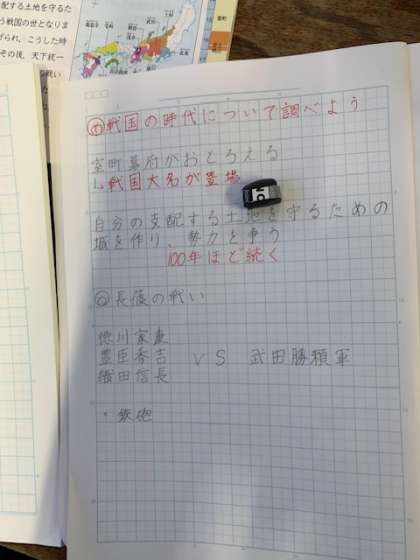 配する土地を守るた
う戦国の世となりま
げられ、こうした時
その後、天下統一
戦い
め 戦国の時代について調べよう
室町幕府がおとろえる
↳戦国大名が登場
自分の支配する土地を守るための
城を作り、勢力を争う
100年ほど続く
長篠の戦い
徳川家康
豊臣秀吉 VS 武田勝頼軍
織田信長
・鉄砲